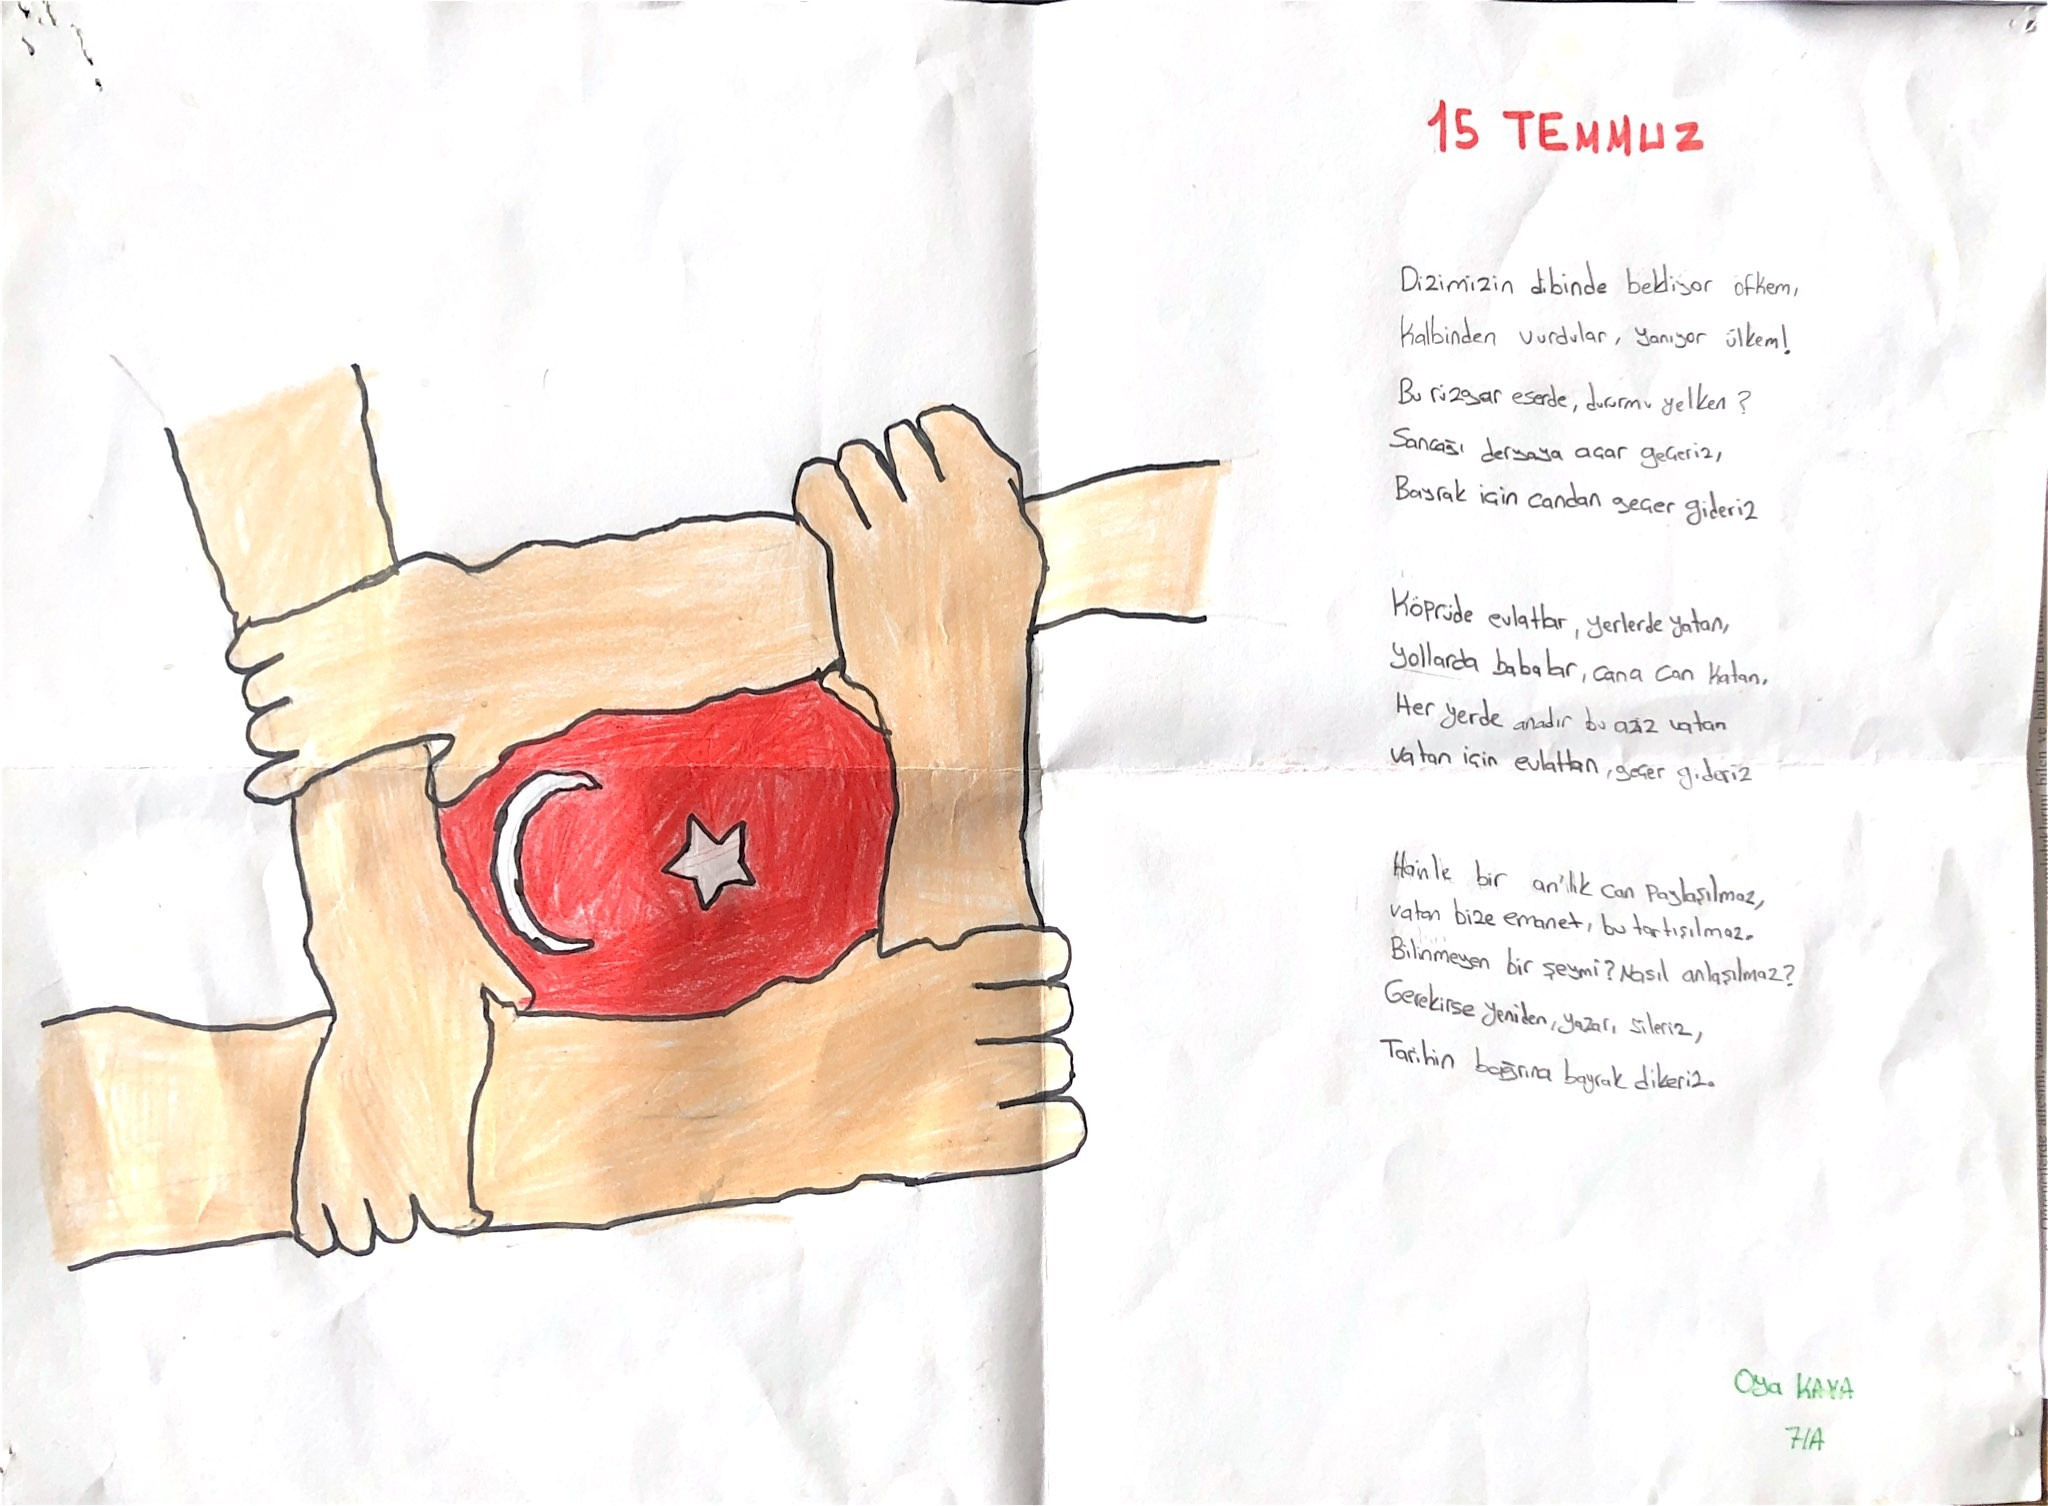 15 TEMMUZ
Dizimizin dibinde bekliyor öfkem,
Kalbinden vurdular, yanıyor ülkem!
Bu rüzgar eserde, dururmu yelken?
Sancağı deryaya açar geçeriz,
Bayrak için candan geçer gideriz
Köprüde evlatlar, yerlerde yatan,
yollarda babalar, cana can katan.
Her yerde anadır bu aziz vatan
vatan için evlattan, geçer gideriz
Hainle bir an'lık can paylaşılmaz,
vatan bize emanet, bu tartışılmaz.
Bilinmeyen bir şeymi? Nasıl anlaşılmaz?
Gerekirse yeniden, yazar, sileriz,
Tarihin bağrına bayrak dikeriz.
Oya KAYA
7/A